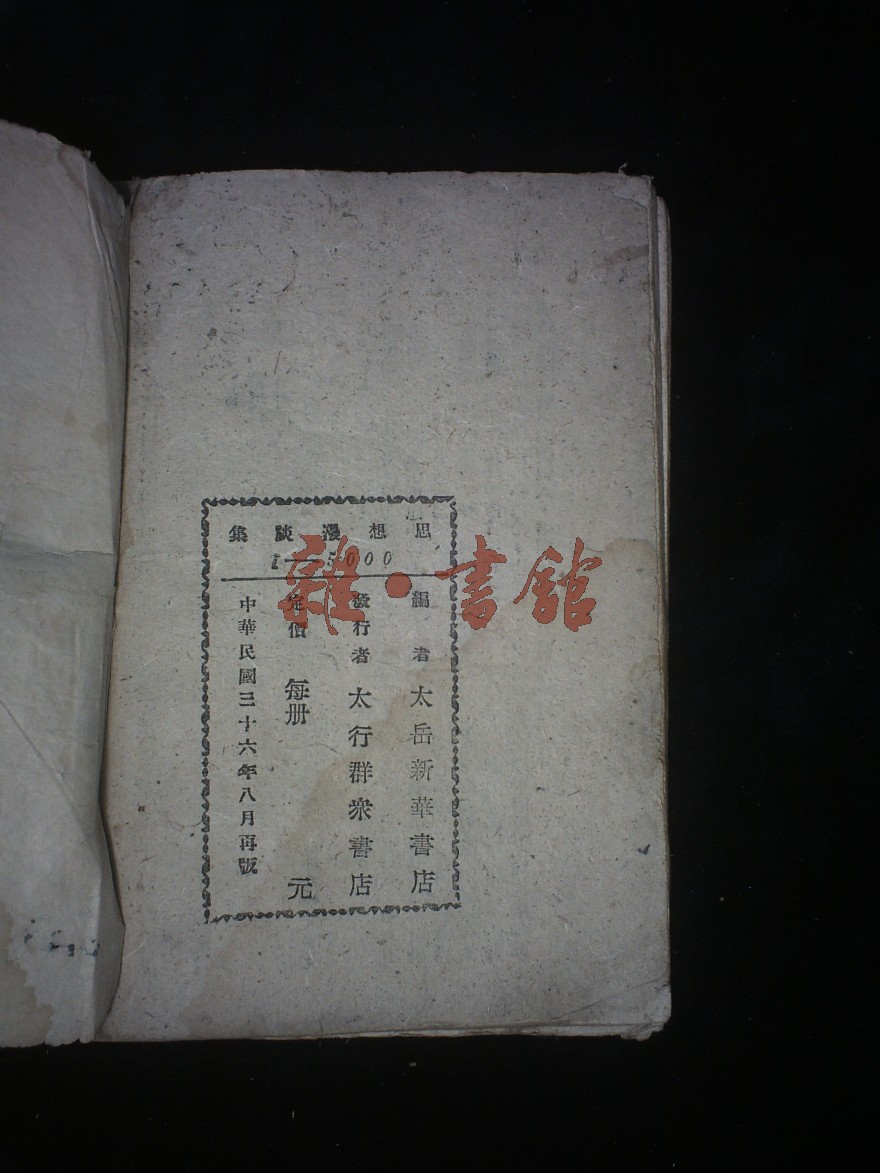 思想漫談集
1—5000
編者 太岳新華書店
發行者 太行群衆書店
定價 每册 元
中華民國三十六年八月再版
雜·書館